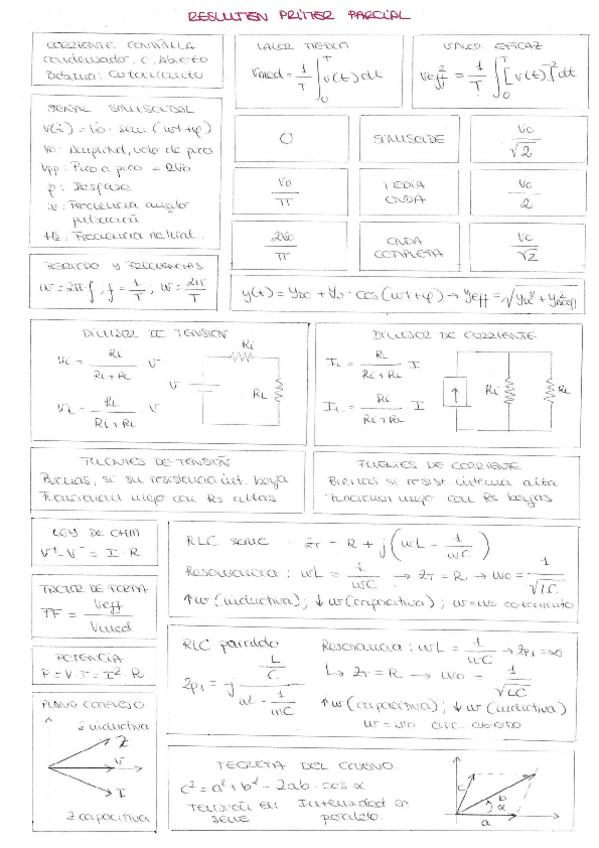 RESUMEN PRIMER PARCIAL
CORRIENTE CONTINUA
condensador: C. Abierto
Bobina: Cortocircuito
VALOR MEDIO
Vmed = 1/T ∫₀ᵀ v(t) dt
VALOR EFICAZ
Veff² = 1/T ∫₀ᵀ [v(t)]² dt
SEÑAL SINUSOIDAL
v(t) = Vo · sen (wt+φ)
Vo: Amplitud, valor de pico
Vpp: Pico a pico = 2Vo
φ: Desfase
w: Frecuencia angular
pulsación
Frecuencia natural
0
SINUSOIDE
Vo/√2
Vo/π
MEDIA
ONDA
Vo/2
2Vo/π
ONDA
COMPLETA
Vo/√2
PERIODO Y FRECUENCIAS
w = 2π·f, f = 1/T; w = 2π/T
y(t) = YDC + Yo · cos (wt+φ) → Yeff =
DIVISOR DE TENSIÓN
Vi = Ri/(Ri+RL) V
VL = RL/(Ri+RL) V
Ri
V
RL
DIVISOR DE CORRIENTE
Ii = RL/(Ri+RL) I
IL = Ri/(Ri+RL) I
Ri
RL
FUENTES DE TENSIÓN
Buenas, si su resistencia int. baja
Funcionan mejor con Rs altas
FUENTES DE CORRIENTE
Buenas si resist. interna alta
Funcionan mejor con Rs bajas
LEY DE OHM
V⁺-V⁻ = I · R
RLC serie ZT = R + j(wL - 1/wC)
Resonancia: wL = 1/wC → ZT = R → wo = 1/√LC
↑w (inductiva); ↓w (capacitiva); w=wo cortocircuito
FACTOR DE FORMA
FF = Veff/Vmed
POTENCIA
P = V·I = I²·R
RLC paralelo
Resonancia: wL = 1/wC → Zp1 = ∞
↳ ZT = R → wo = 1/√LC
↑w (capacitiva); ↓w (inductiva)
w = wo circ. abierto
PLANO COMPLEJO
Z inductiva
Z
V
I
Z capacitiva
TEOREMA DEL COSENO
c² = a² + b² - 2ab · cos α
Tensión en Intensidad en
serie paralelo.
c
b
α
a